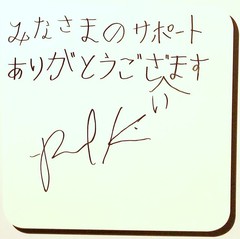 みなさまのサポート
ありがとうござます
い